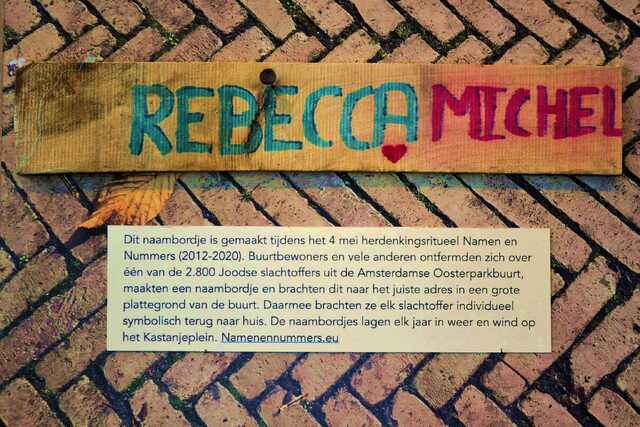 REBECCA MICHEL
Dit naambordje is gemaakt tijdens het 4 mei herdenkingsritueel Namen en
Nummers (2012-2020). Buurtbewoners en vele anderen ontfermden zich over
één van de 2.800 Joodse slachtoffers uit de Amsterdamse Oosterparkbuurt,
maakten een naambordje en brachten dit naar het juiste adres in een grote
plattegrond van de buurt. Daarmee brachten ze elk slachtoffer individueel
symbolisch terug naar huis. De naambordjes lagen elk jaar in weer en wind op
het Kastanjeplein. Namenennummers.eu